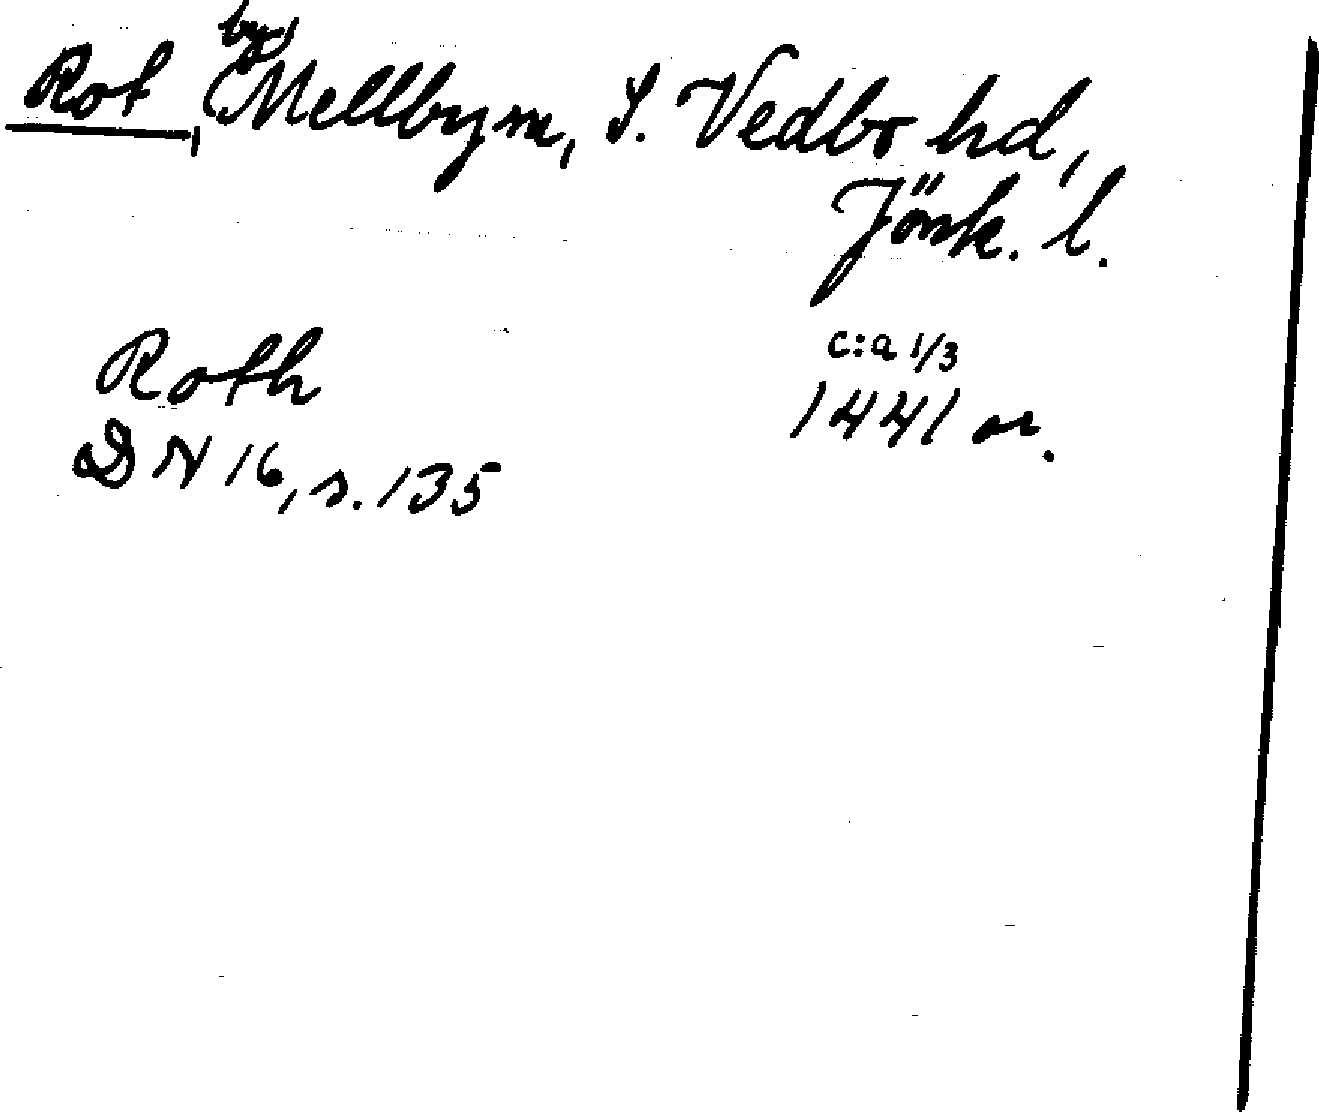 Rot, by, Mellby sn, S. Vedbo hd,
Jönk. l.
Roth c:a 1/3
1441 or.
DN 16, s. 135